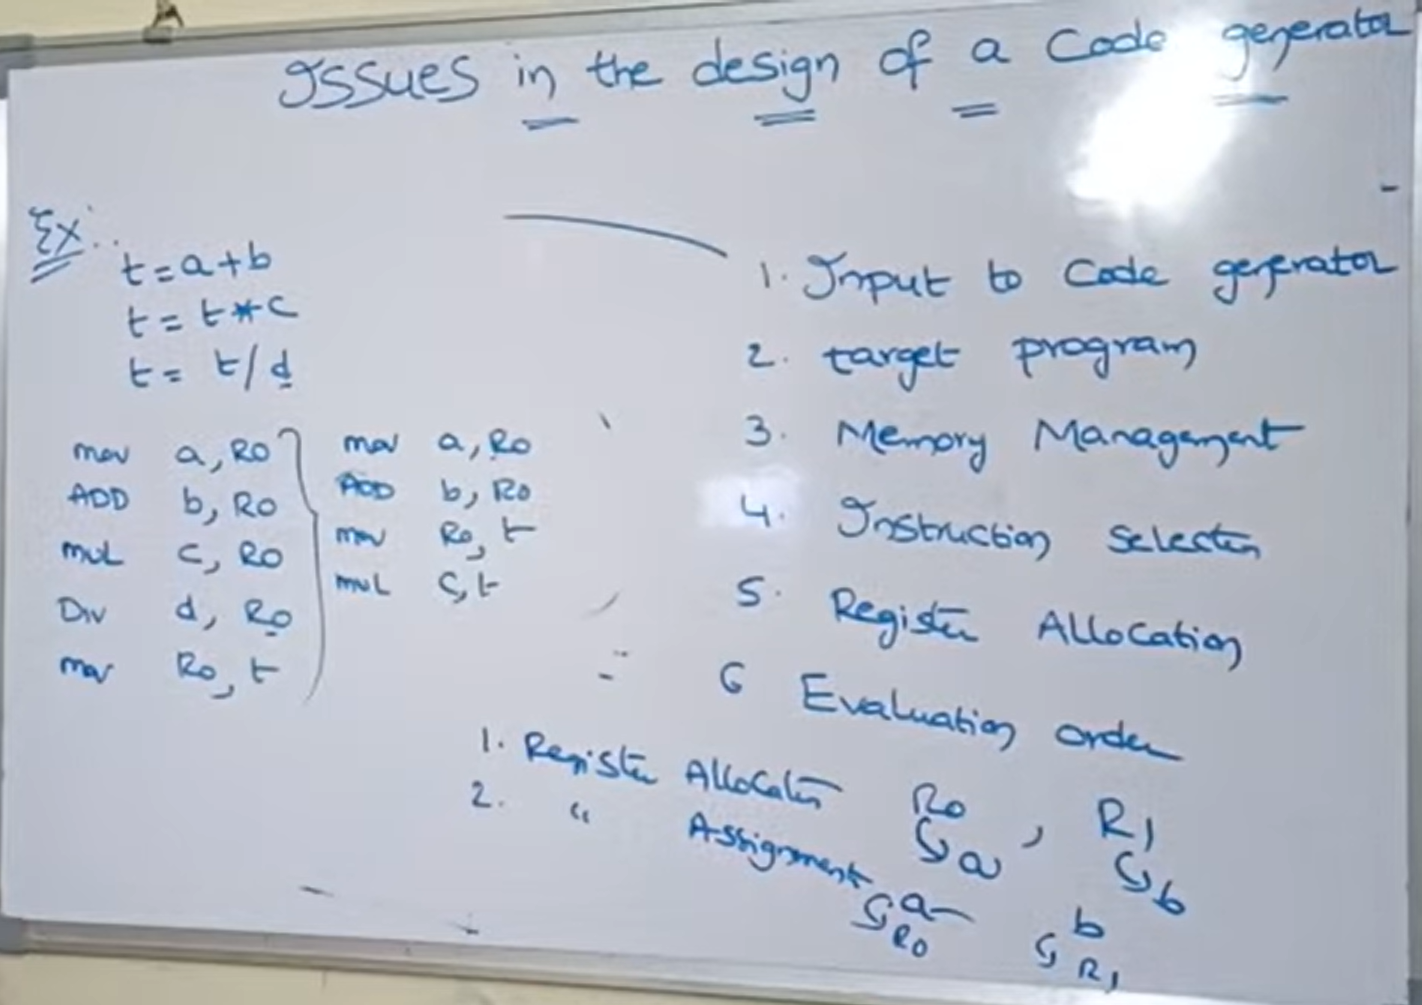 Issues in the design of a Code generator
Ex:
t=a+b
t=t*c
t=t/d
mov a,R0
ADD b,R0
mul c,R0
Div d,R0
mov R0,t
mov a,R0
ADD b,R0
mov R0,t
mul c,t
1. Input to Code generator
2. target program
3. Memory Management
4. Instruction Selection
5. Register Allocation
6 Evaluation order
1. Register Allocation R0 , R1
a b
2. " Assignment a b
R0 R1